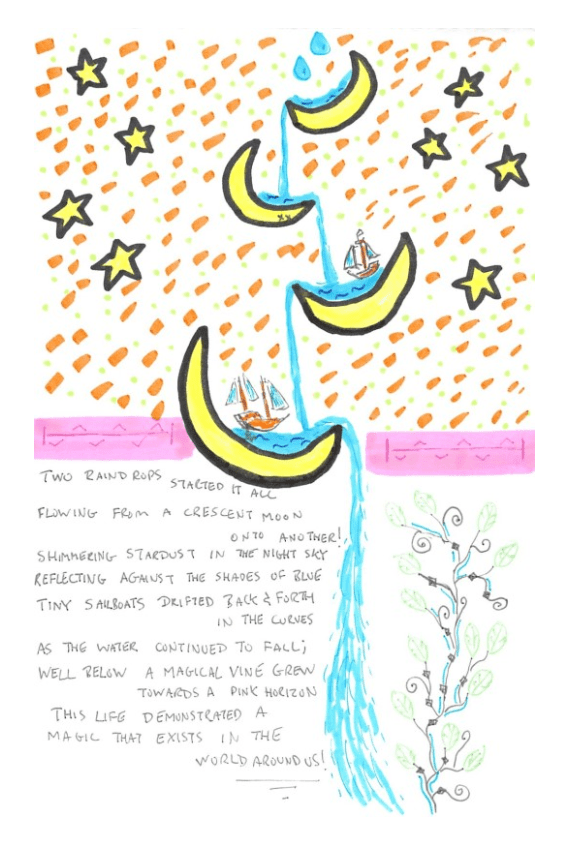 TWO RAINDROPS STARTED IT ALL
FLOWING FROM A CRESCENT MOON
ONTO ANOTHER!
SHIMMERING STARDUST IN THE NIGHT SKY
REFLECTING AGAINST THE SHADES OF BLUE
TINY SAILBOATS DRIFTED BACK & FORTH
IN THE CURVES
AS THE WATER CONTINUED TO FALL;
WELL BELOW A MAGICAL VINE GREW
TOWARDS A PINK HORIZON
THIS LIFE DEMONSTRATED A
MAGIC THAT EXISTS IN THE
WORLD AROUND US!